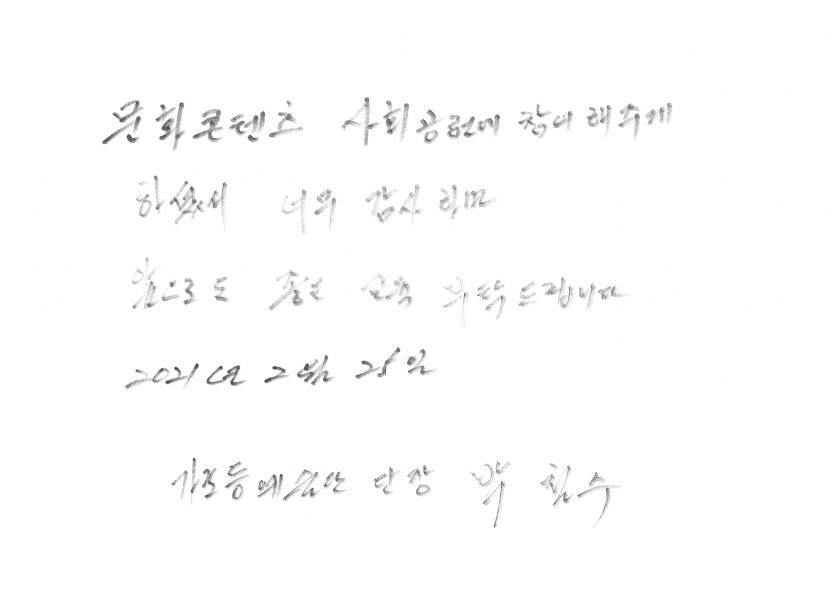 문화콘텐츠 사회공헌에 참여 해주게
하셨서 너무 감사 하며
앞으로도 좋은 부탁드립니다
2021년 2월 25일
예술단 단장 박 칠수